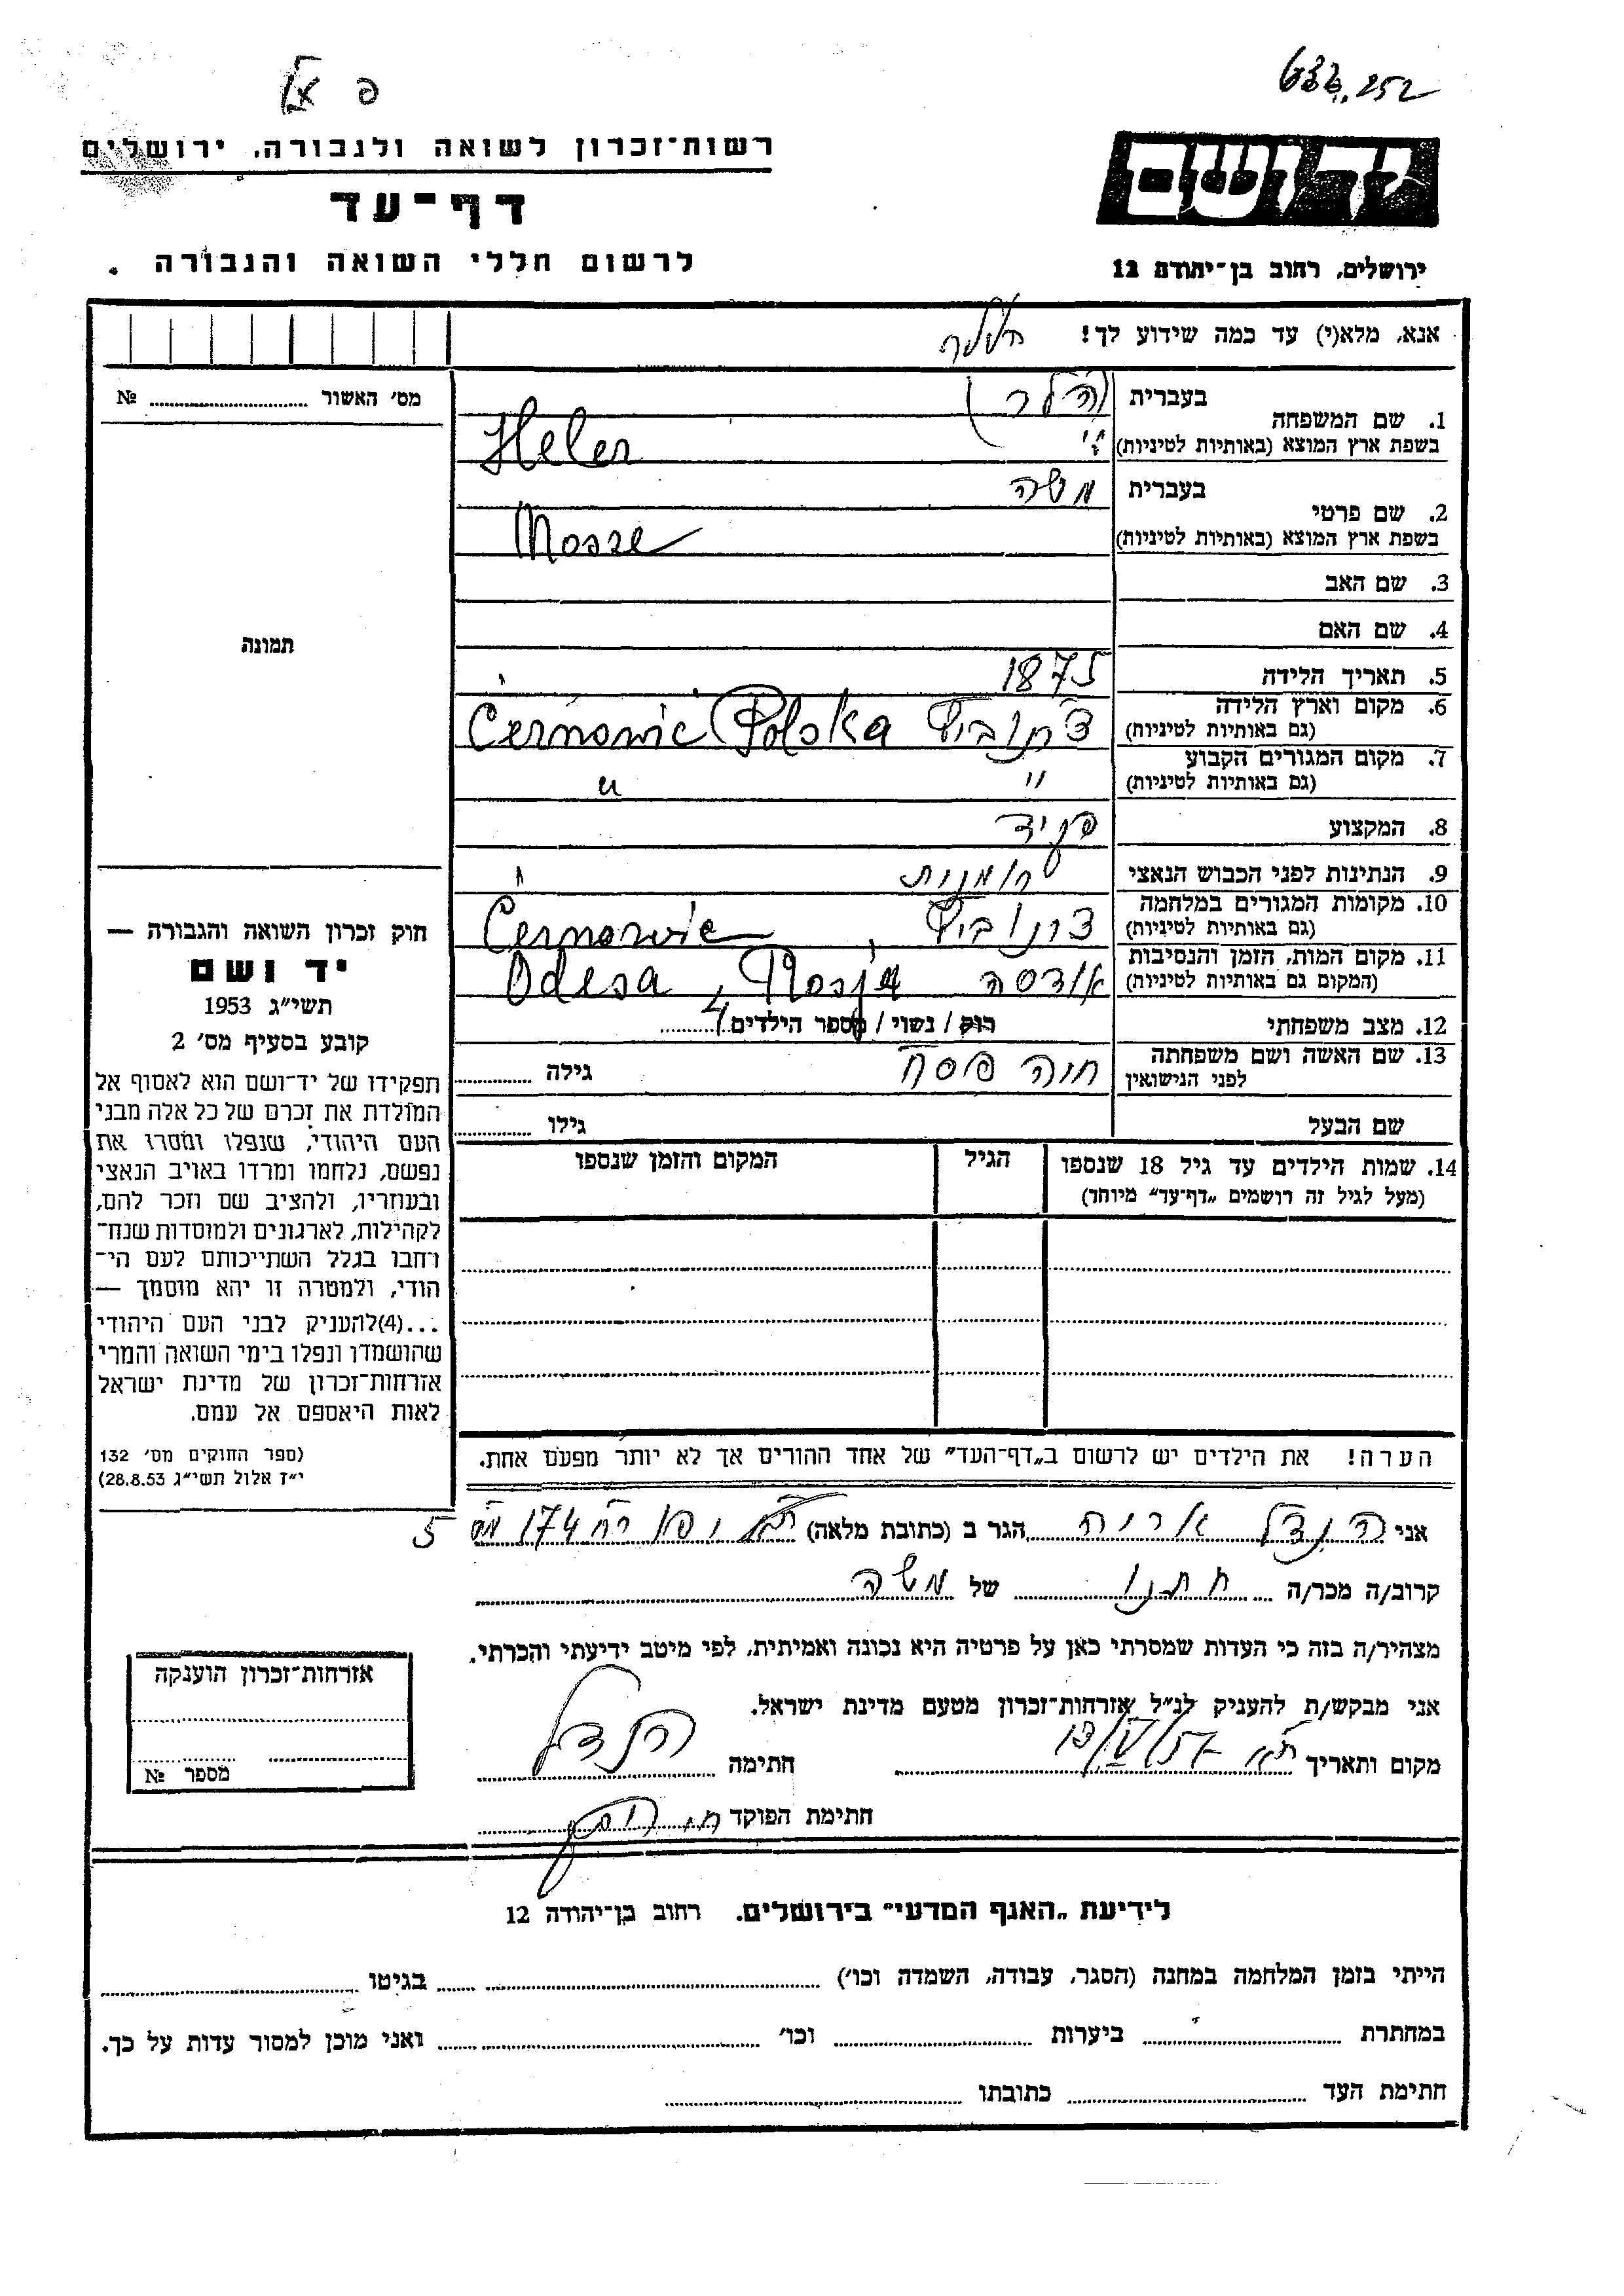 632.252
רשות־זכרון לשואה ולגבורה, ירושלים
יד ושם
דף־עד
לרשום חללי השואה והגבורה.
ירושלים, רחוב בן־יהודה 12
אנא, מלא(י) עד כמה שידוע לך!
מס׳ האשור № 
1. שם המשפחה בעברית (הלר)
בשפת ארץ המוצא (באותיות לטיניות) Heler
2. שם פרטי בעברית משה
בשפת ארץ המוצא (באותיות לטיניות) Mosze
3. שם האב
4. שם האם
תמונה
5. תאריך הלידה 1875
6. מקום וארץ הלידה (גם באותיות לטיניות) צרנוביץ Černowic Polska
7. מקום המגורים הקבוע (גם באותיות לטיניות) " "
8. המקצוע פקיד
9. הנתינות לפני הכבוש הנאצי רומנית
10. מקומות המגורים במלחמה (גם באותיות לטיניות) צרנוביץ, Černowic
11. מקום המות, הזמן והנסיבות (המקום גם באותיות לטיניות) אודסה Odesa, Rosja
12. מצב משפחתי רוק / נשוי / מספר הילדים 4
13. שם האשה ושם משפחתה לפני הנישואין חוה פסח גילה
שם הבעל גילו
14. שמות הילדים עד גיל 18 שנספו (מעל לגיל זה רושמים „דף־עד״ מיוחד) הגיל המקום והזמן שנספו
חוק זכרון השואה והגבורה —
יד ושם
תשי״ג 1953
קובע בסעיף מס׳ 2
תפקידו של יד־ושם הוא לאסוף אל
המולדת את זכרם של כל אלה מבני
העם היהודי, שנפלו ומסרו את
נפשם, נלחמו ומרדו באויב הנאצי
ובעוזריו, ולהציב שם וזכר להם,
לקהילות, לארגונים ולמוסדות שנח־
רבו בגלל השתייכותם לעם הי־
הודי, ולמטרה זו יהא מוסמך —
...(4)להעניק לבני העם היהודי
שהושמדו ונפלו בימי השואה והמרי
אזרחות־זכרון של מדינת ישראל
לאות היאספם אל עמם.
(ספר החוקים מס׳ 132
י״ז אלול תשי״ג 28.8.53)
הערה! את הילדים יש לרשום ב„דף־העד״ של אחד ההורים אך לא יותר מפעם אחת.
אני הנדל אריה הגר ב (כתובת מלאה) ת״א 174 5
קרוב/ה מכר/ה חתנו של משה
מצהיר/ה בזה כי העדות שמסרתי כאן על פרטיה היא נכונה ואמיתית, לפי מיטב ידיעתי והכרתי.
אני מבקש/ת להעניק לנ״ל אזרחות־זכרון מטעם מדינת ישראל.
מקום ותאריך ת״א חתימה הנדל
חתימת הפוקד
אזרחות־זכרון הוענקה
מספר №
לידיעת „האגף המדעי״ בירושלים. רחוב בן־יהודה 12
הייתי בזמן המלחמה במחנה (הסגר, עבודה, השמדה וכו׳) בגיטו
במחתרת ביערות וכו׳ ואני מוכן למסור עדות על כך.
חתימת העד כתובתו